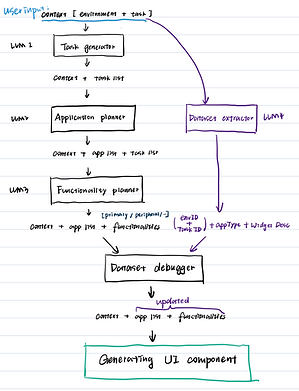 user input: context [environment + task]
LLM 1
Task generator
context + task list
LLM2
Application planner
Dataset extractor
LLM4
context + app list + task list
LLM3
Functionality planner
[primary / peripheral / -]
context + app list + functionalities
(EnvID + Task ID) + appType + Widget Desc
Dataset debugger
updated
context + app list + functionalities
Generating UI component